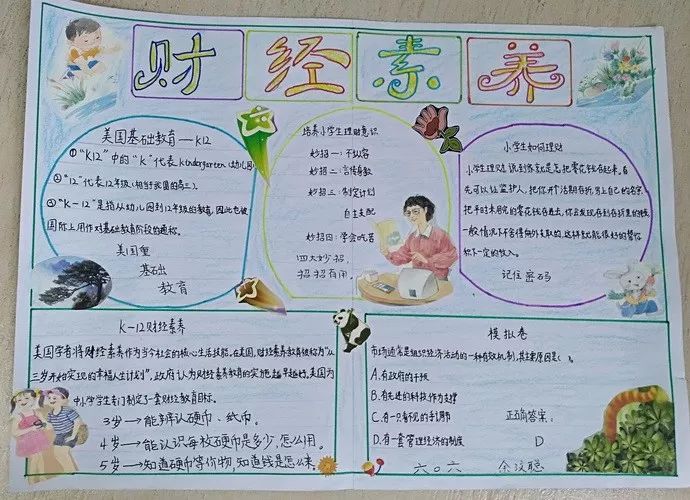 财经素养
美国基础教育—K12
①“K12”中的“K”代表kindergarten(幼儿园)
②“12”代表12年级(相当于我国的高三).
③“K-12”是指从幼儿园到12年级的教育,因此也被
国际上用作对基础教育阶段的通称.
美国重
基础
教育
培养小学生理财意识
妙招一:不纵容
妙招二:言传身教
妙招三:制定计划
自主支配
妙招四:学会吃苦
四大妙招,
招招有用.
小学生如何理财
小学生理财,说到底就是怎把零花钱存起来.首
先可以让监护人,把你开个活期存折,写上自己的名字.
把平时未用完的零花钱存进去,你会发现存到存折里的钱
一般情况下舍得向外支取的,这样就能很好的帮你
积下一定的收入.
记住密码
K-12财经素养
美国学者将财经素养作为当今社会的核心生活技能.在美国,财经素养教育被称为“从
三岁开始实现的幸福人生计划”,政府认为财经素养教育的实施越早越好.美国为
中小学学生专门制定了一套财经教育目标.
3岁→能辨认硬币、纸币.
4岁→能认识每枚硬币是多少,怎么用.
5岁→知道硬币等价物,知道钱是怎么来.
模拟卷
市场通常是组织经济活动的一种有效机制,其主要原因是( ).
A.有政府的干预
B.有先进的科技作为支撑
C.有一只看不见的手调节
正确答案:
D.有一套管理经济的制度
D
六〇六